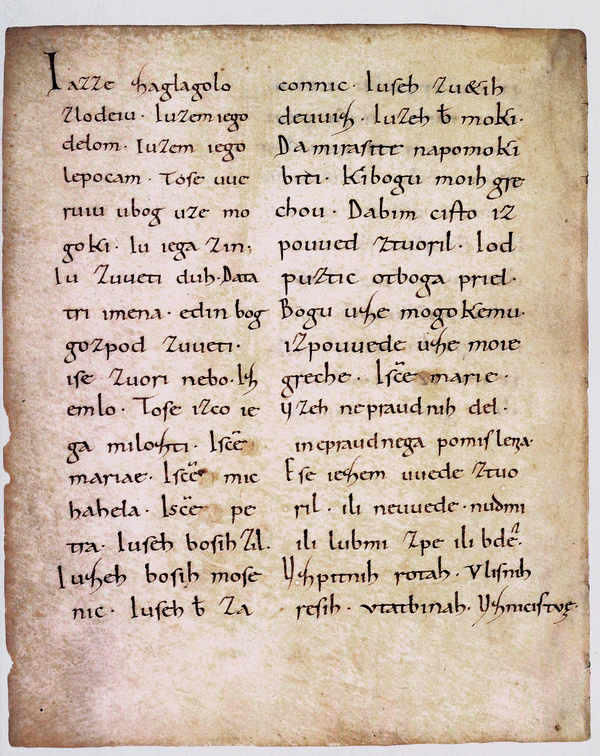 Iazze zaglagolo
zlodeiu · Iuzem iego
delom · Iuzem iego
lepocam · Tose uue
ruiu ubog uze mo
goki · Iu iega zin;
Iu zuueti duh · Data
tri imena · edin bog
gozpod zuueti ·
ise zuori nebo · Is
emlo · Tose izco ie
ga milosti · Isc̄e
mariae · Isc̄e mic
hahela · Isc̄e pe
tra · Iuseh bosih zil ·
Iuseh bosih mose
nic · Iuseh b̄ za
connic · Iuseh zu&ih
deuuis · Iuzeh b̄ moki ·
Da mi rasite na pomoki
biti · Ki bogu moih gre
chou · Da bim cisto iz
pouued ztuoril · I od
puztic ot boga priel ·
Bogu uze mogokemu ·
izpouuede uze moie
greche · I sc̄e marie ·
Uzeh nepraudnih del ·
i nepraudnega pomislenia ·
Ese iesem uuede ztuo
ril · ili neuuede · nudmi
ili lubmi zpe ili bde ·
Uspitnih rotah · Vlisnih
resih · v tatbinah · Usnicistue ·